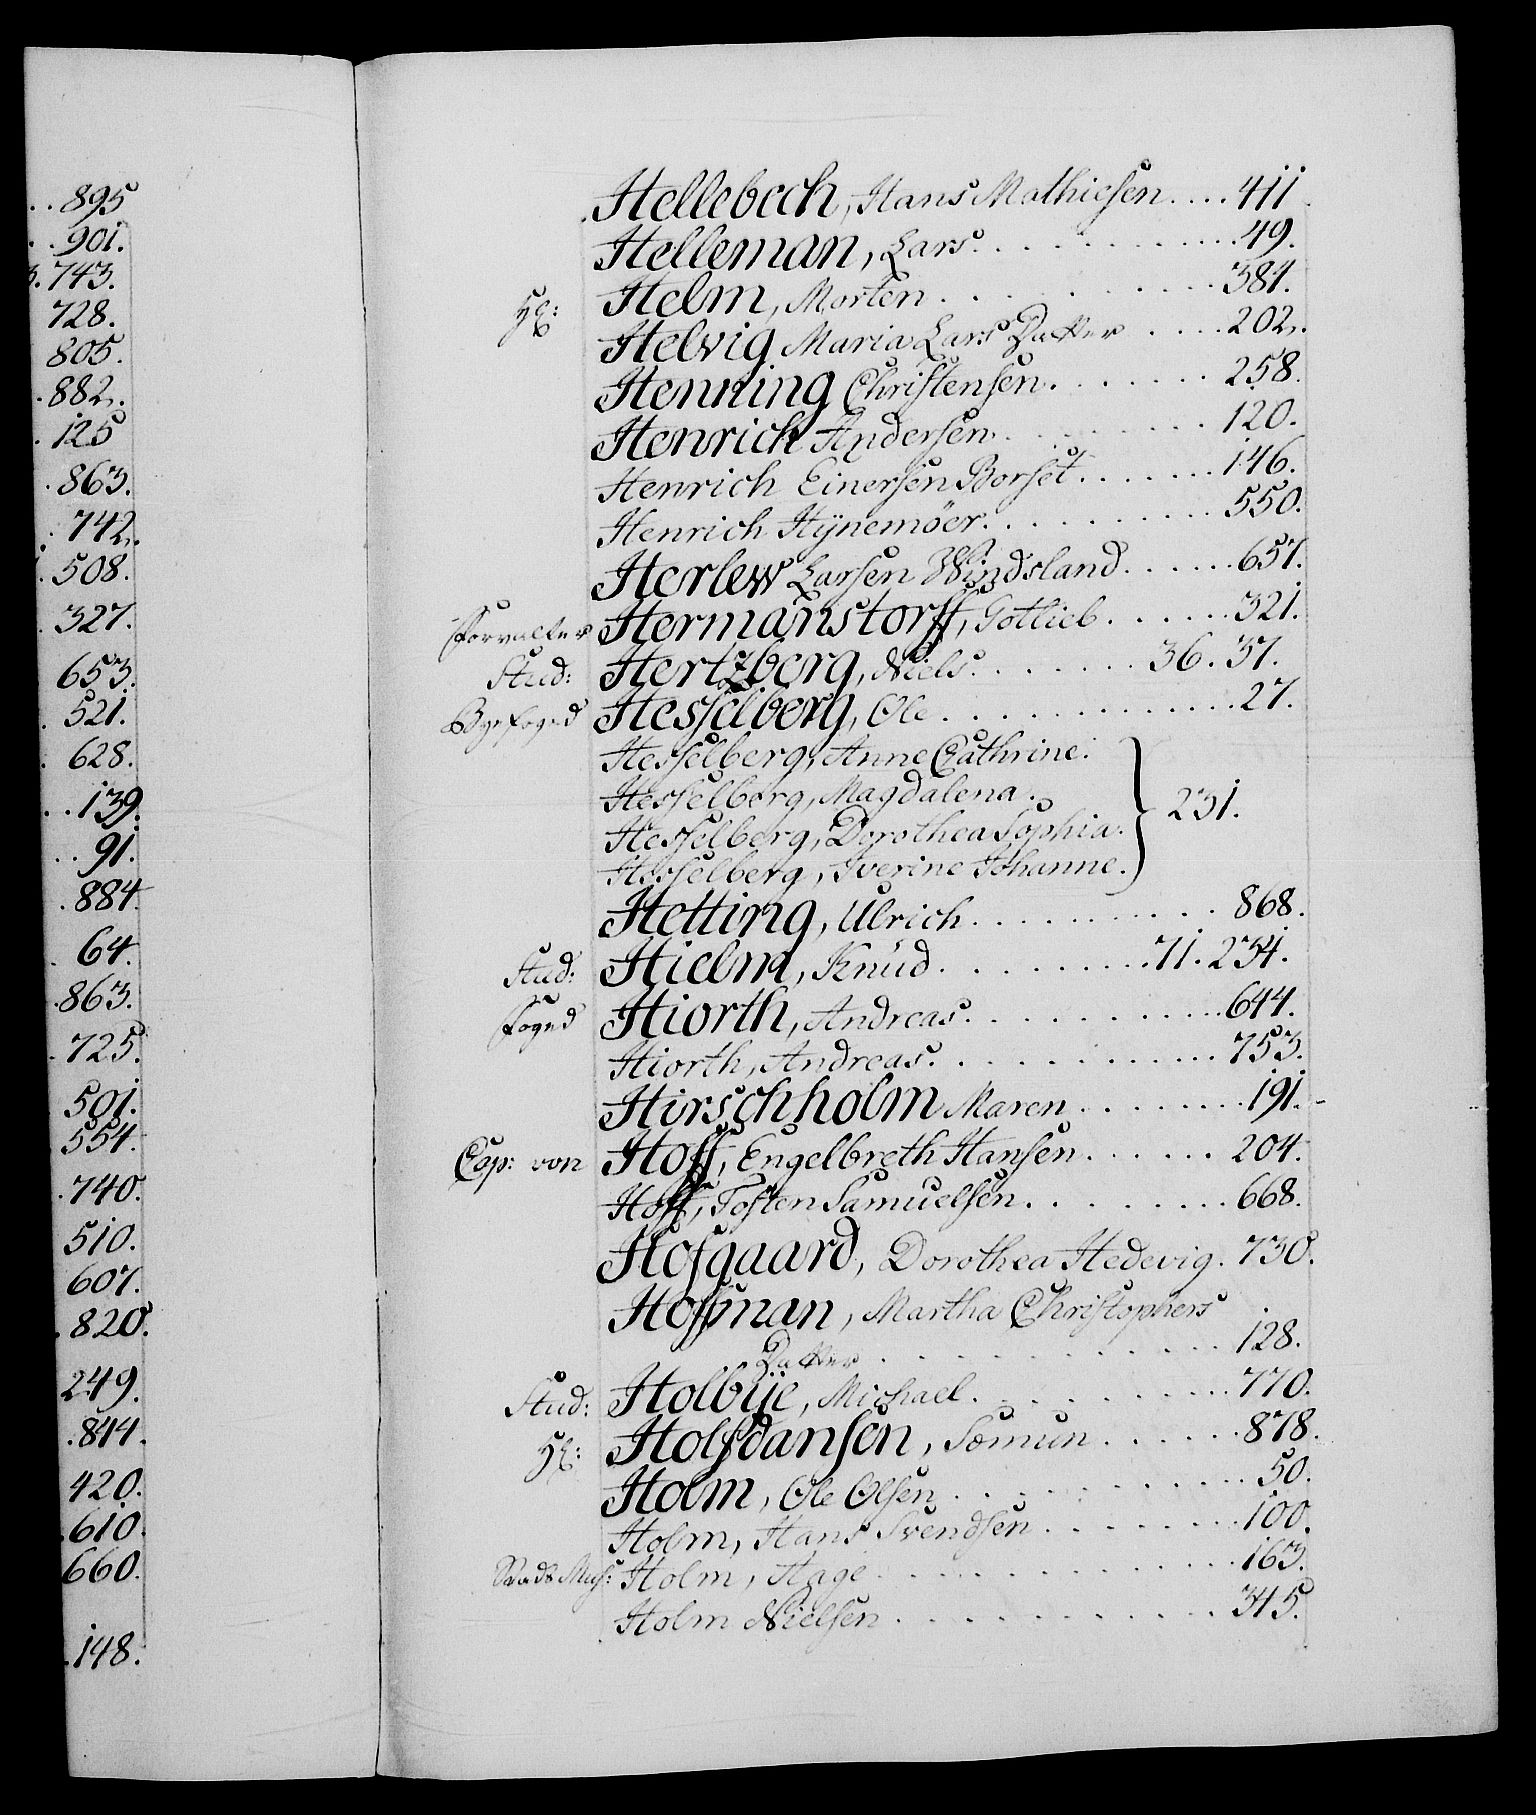 . . 895
. . 901.
3. 743.
728.
805.
. 882.
. 125
. 863.
. 742.
. 508.
. 327.
653.
. 521.
. 628.
. . 139.
. . 91.
. 884
. 64.
. 863.
. 725.
. 501.
554.
. 740.
510.
607.
. 820.
249.
. 844.
420.
. 610.
660.
. 148.
Hellebech, Hans Mathiesen. . . . 411
Helleman, Lars. . . . . . . . . . . . 49.
Helm, Morten . . . . . . . . . . . 384.
Helvig Maria Lars Datter . . . . 202.
Henning Christensen. . . . . . . 258.
Henrich Andersen. . . . . . . . . 120.
Henrich Einersen Borset. . . . . . . 146.
Henrich Hÿnemöer. . . . . . . . . . 550.
Herlew Larsen Windsland. . . . . . 657.
Forvalter Hermanstorff, Gotlieb. . . . . . 321.
Stud: Hertzberg, Niels. . . . . . . 36. 37.
Byefoged Hesselberg, Ole. . . . . . . . . . . . . 27.
Hesselberg, Anne Cathrine.
Hesselberg, Magdalena.
Hesselberg, Dorothea Sophia. } 231.
Hesselberg, Iverine Johanne.
Hetting, Ulrich. . . . . . . . . . . 868.
Stud: Hielm, Knud. . . . . . . . . . 71. 234.
Foged Hiorth, Andreas. . . . . . . . . . . 644.
Hiorth, Andreas. . . . . . . . . . . . 753.
Hirschholm Maren . . . . . . . . . 191.
Cap: von Hoff, Engelbreth Hansen. . . . . . 204.
Hoff, Tosten Samuelsen. . . . . . . . . 668.
Hofgaard, Dorothea Hedevig. 730.
Hoffman, Martha Christophers
Datter . . . . . . . . . . . . 128.
Stud: Holbÿe, Michael. . . . . . . . . . . 770.
Holfdansen, Sæmun. . . . . . 878.
Holm, Ole Olsen. . . . . . . . . . . 50.
Holm, Hans Svendsen. . . . . . . . 100.
Holm, Hage. . . . . . . . . . . . . 163.
Holm Nielsen. . . . . . . . . . . . 345.